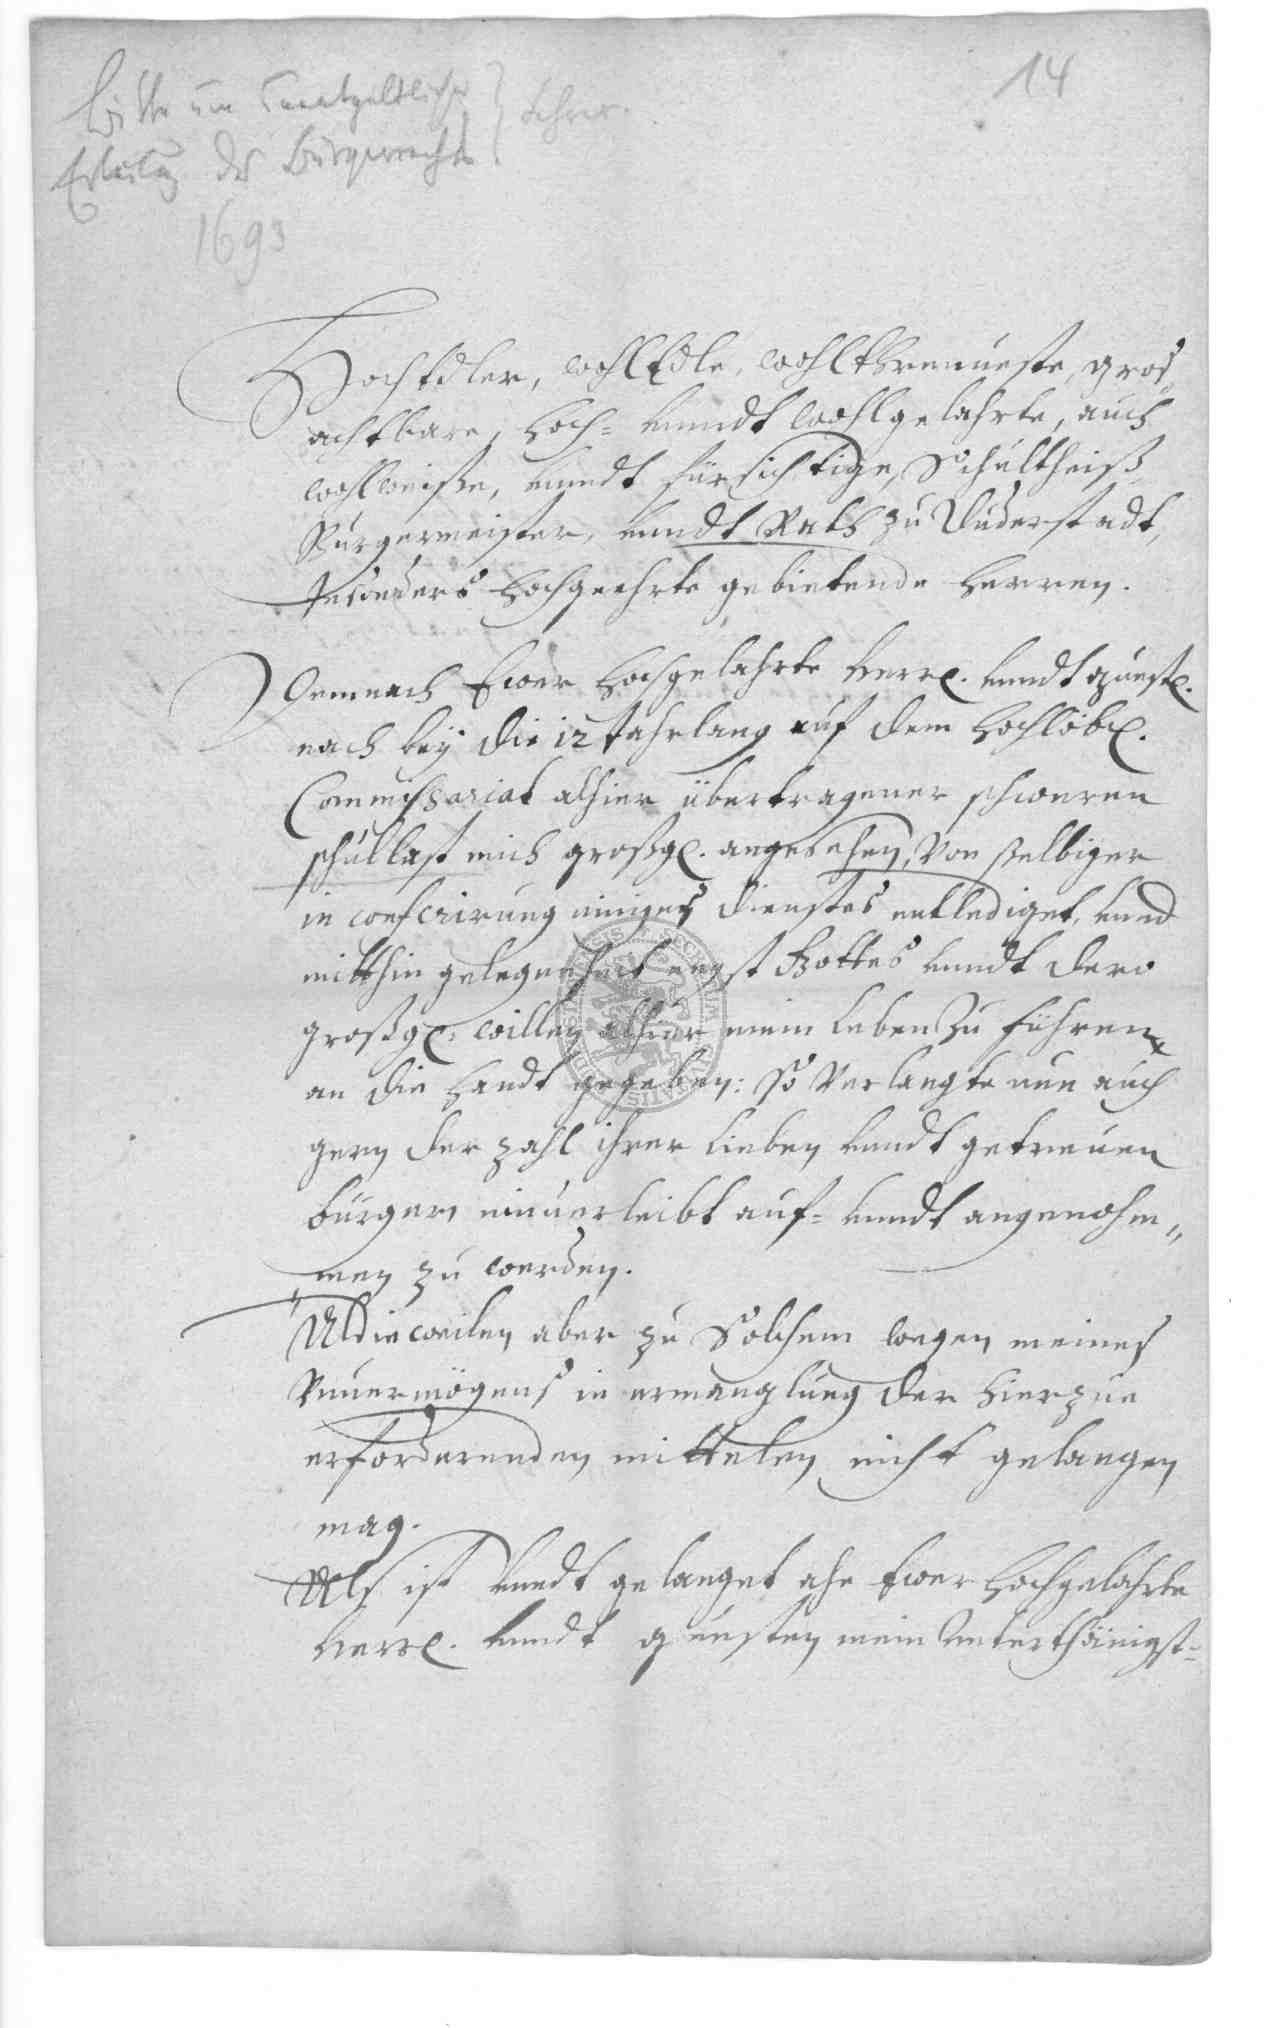 14
Bitte um unentgeltliche } Lehrer.
Erteilung des Bürgerrechts
1693
HochEdler, wohlEdle, wohlEhrenueste, gros
achtbare, Hoch= vnndt wohlgelahrte, auch
wohlweiße, vnndt fürsichtige, Schultheiß
Burgermeister, vnndt Rath zu Duderstadt,
Jnsonders Hochgeehrte gebietende Herren.
Demnach Ewer Hochgelahrte Herrl. vnndt gunst.
nach bey die 12 Jahrlang auf dem Hochlöbl.
Commissariat alhier übertragener schweren
schullast mich großgl. angesehen, Von selbiger
in conferirung einiges dienstes entlediget, vnnd
mitthin gelegenheit negst Gottes vnndt dero
großgl. willen alhier mein leben Zu führen
an die Handt gegeben: So Verlangte nun auch
gern der zahl ihrer lieben vnndt getreuen
burgern einuerleibt auf= vnndt angenohm„
men zu werden.
Aldieweilen aber zu Solchem wegen meines
Vnuermögens in ermanglung der hierzue
erforderenden mittelen nicht gelangen
mag.
Als ist vnndt gelanget ahn Ewer Hochgelahrte
Herrl. vnndt gunsten mein Vnterthänigst=